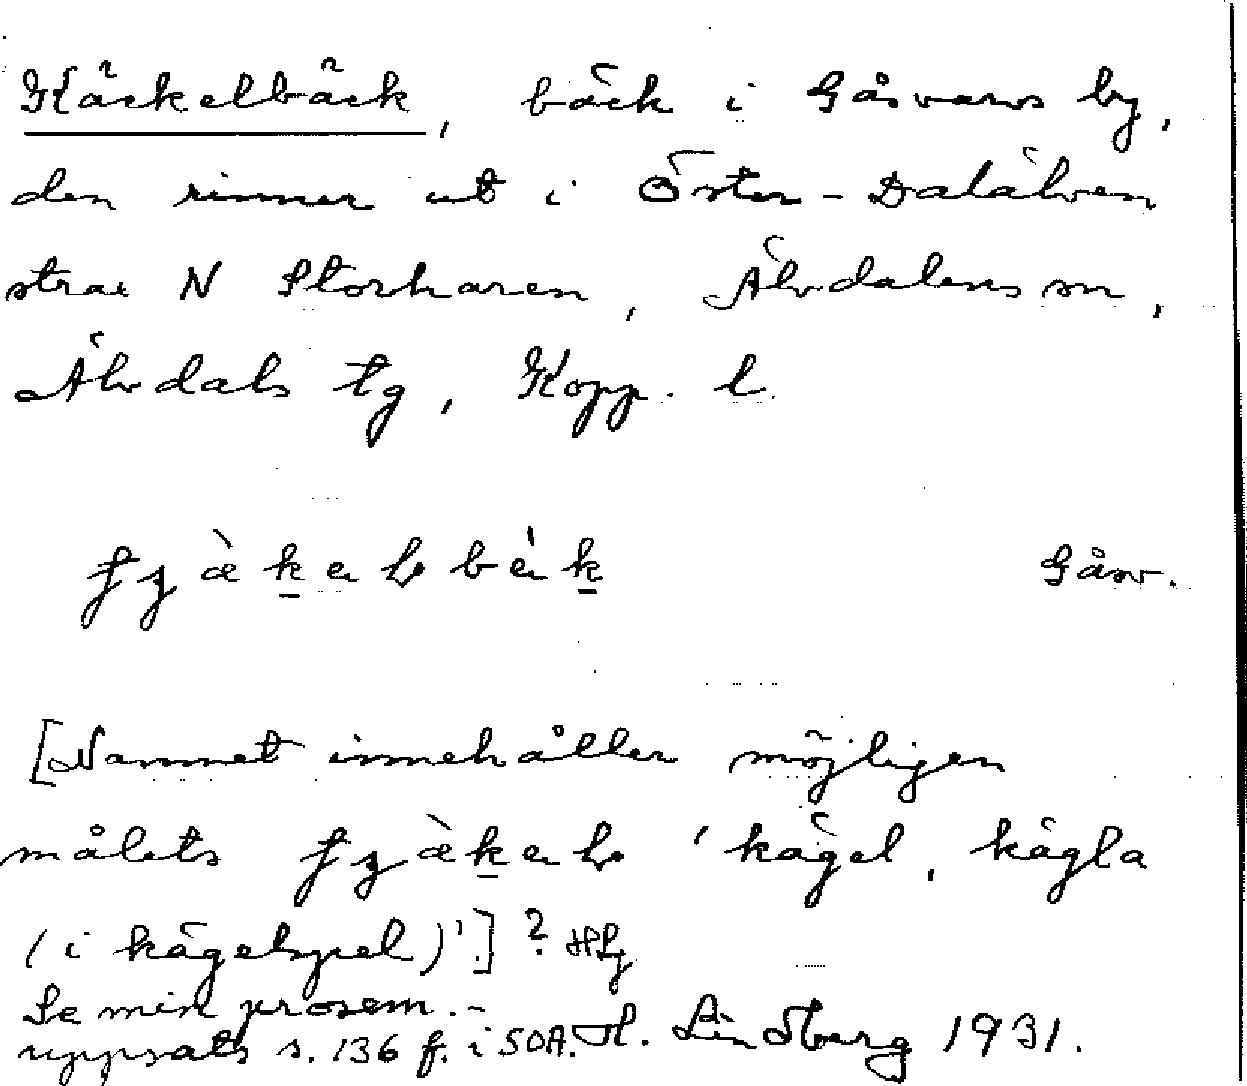 Käckelbäck, bäck i Gåsvarvs by,
den rinner ut i Öster-Dalälven
strax N Storharen, Älvdalens sn,
Älvdals tg, Kopp. l.
Gåsv.
[Namnet innehåller möjligen
målets 'kägel, kägla
(i kägelspel)'.]? HLg
Se min prosem.-
uppsats s. 136 f. i SOA. H. Lindberg 1931.